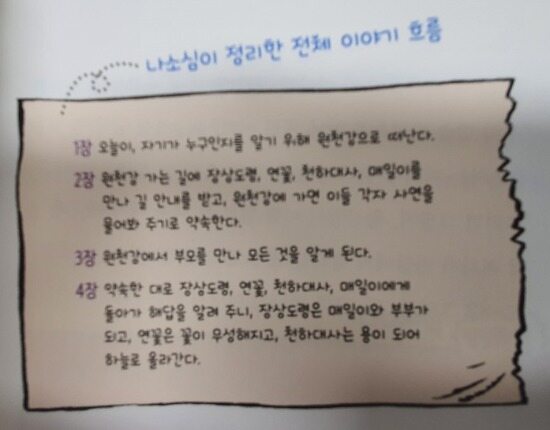 나소심이 정리한 전체 이야기 흐름
1장 오늘이, 자기가 누구인지를 알기 위해 원천강으로 떠난다.
2장 원천강 가는 길에 장상도령, 연꽃, 천하대사, 매일이를
만나 길 안내를 받고, 원천강에 가면 이들 각자 사연을
물어봐 주기로 약속한다.
3장 원천강에서 부모를 만나 모든 것을 알게 된다.
4장 약속한 대로 장상도령, 연꽃, 천하대사, 매일이에게
돌아가 해답을 알려 주니, 장상도령은 매일이와 부부가
되고, 연꽃은 꽃이 무성해지고, 천하대사는 용이 되어
하늘로 올라간다.